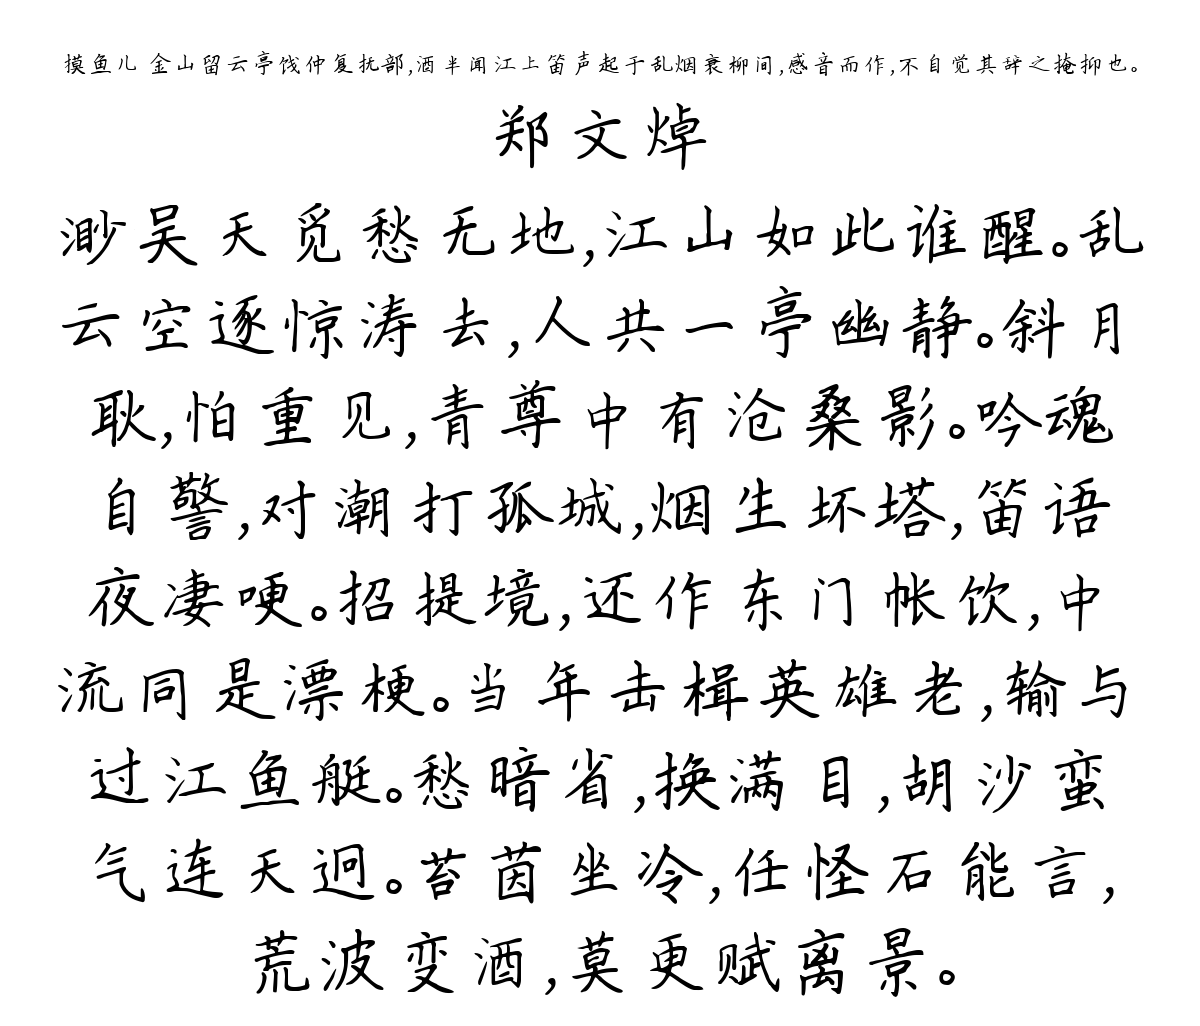 摸鱼儿 金山留云亭饯仲复抚部,酒半闻江上笛声起于乱烟衰柳间,感音而作,不自觉其辞之掩抑也。
郑文焯
渺吴天觅愁无地,江山如此谁醒。乱
云空逐惊涛去,人共一亭幽静。斜月
耿,怕重见,青尊中有沧桑影。吟魂
自警,对潮打孤城,烟生坏塔,笛语
夜凄哽。招提境,还作东门帐饮,中
流同是漂梗。当年击楫英雄老,输与
过江鱼艇。愁暗省,换满目,胡沙蛮
气连天迥。苔茵坐冷,任怪石能言,
荒波变酒,莫更赋离景。